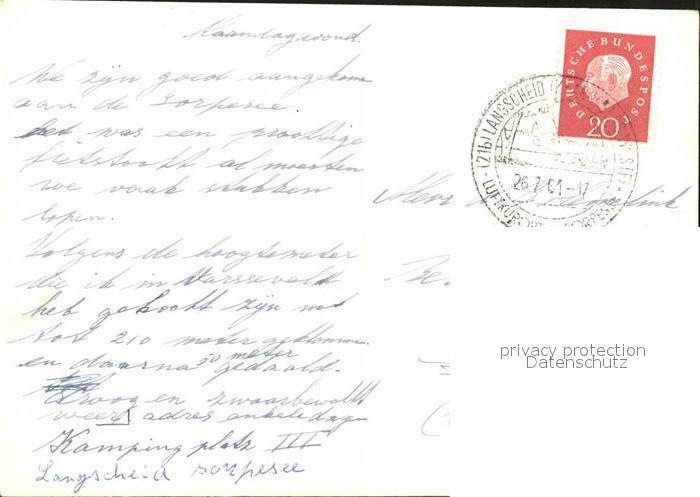 Maandagavond.
We zijn goed aangekomen
aan de Sorpesee.
het was een prachtige
fietstocht al moesten
we vaak stukken
lopen.
Volgens de hoogtemeter
die ik in Varsseveldt
heb gekocht zijn we
tot 210 meter geklommen
en daarna 50 meter gedaald.
droog en zwaarbewolkt
weer adres enkele dagen
Kamping platz III
Langscheid Sorpesee
DEUTSCHE BUNDESPOST
20
(21b) LANGSCHEID
26.7.61-17
LUFTKURORT SORPESEE
Herr
privacy protection
Datenschutz